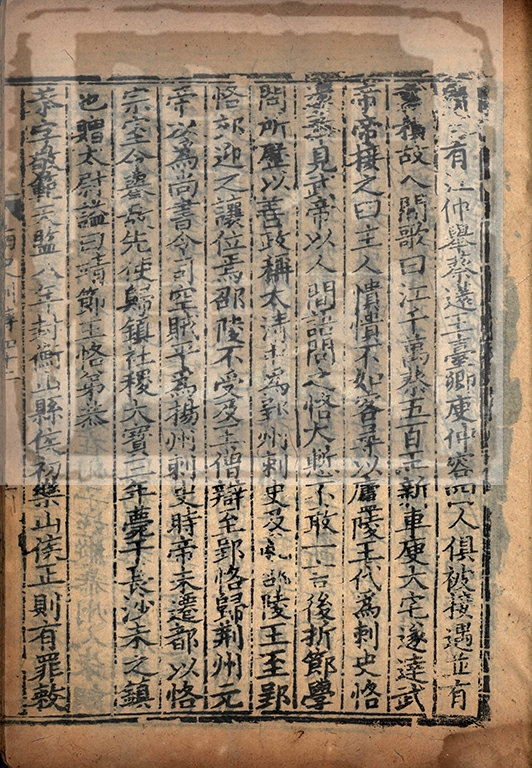 有江仲舉蔡薳王臺卿庾仲容四人俱被接遇並有
積故人間歌曰江千萬蔡五百王新車庾大宅遂達武
帝帝接之曰主人憒憒不如客尋以廬陵王代為刺史恪
還奉見武帝以人間語問之恪大慙不敢一言後折節學
問所歷以善政稱太清中為郢州刺史及亂邵陵王至郢
恪郊迎之讓位焉邵陵不受及王僧辯至郢恪歸荆州元
帝以為尚書令司空賊平為揚州刺史時帝未遷都以恪
宗室令譽先使歸鎮社稷大寶三年薨于長沙未之鎮
也贈太尉謚曰靖節王恪弟恭
恭字敬範天監八年封衡山縣侯初樂山侯正則有罪敕